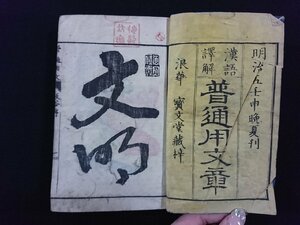 明治九壬申晩夏刊
漢語
譯解
普通用文章
浪華 寶文堂藏梓
文明